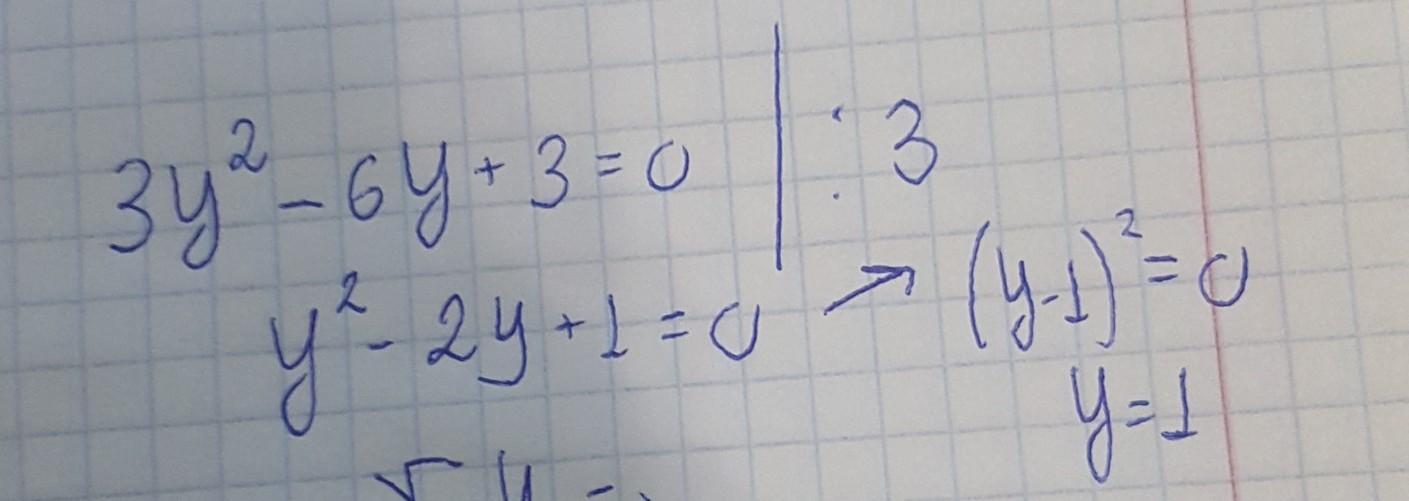 3y² - 6y + 3 = 0 | : 3
y² - 2y + 1 = 0 → (y-1)² = 0
y = 1